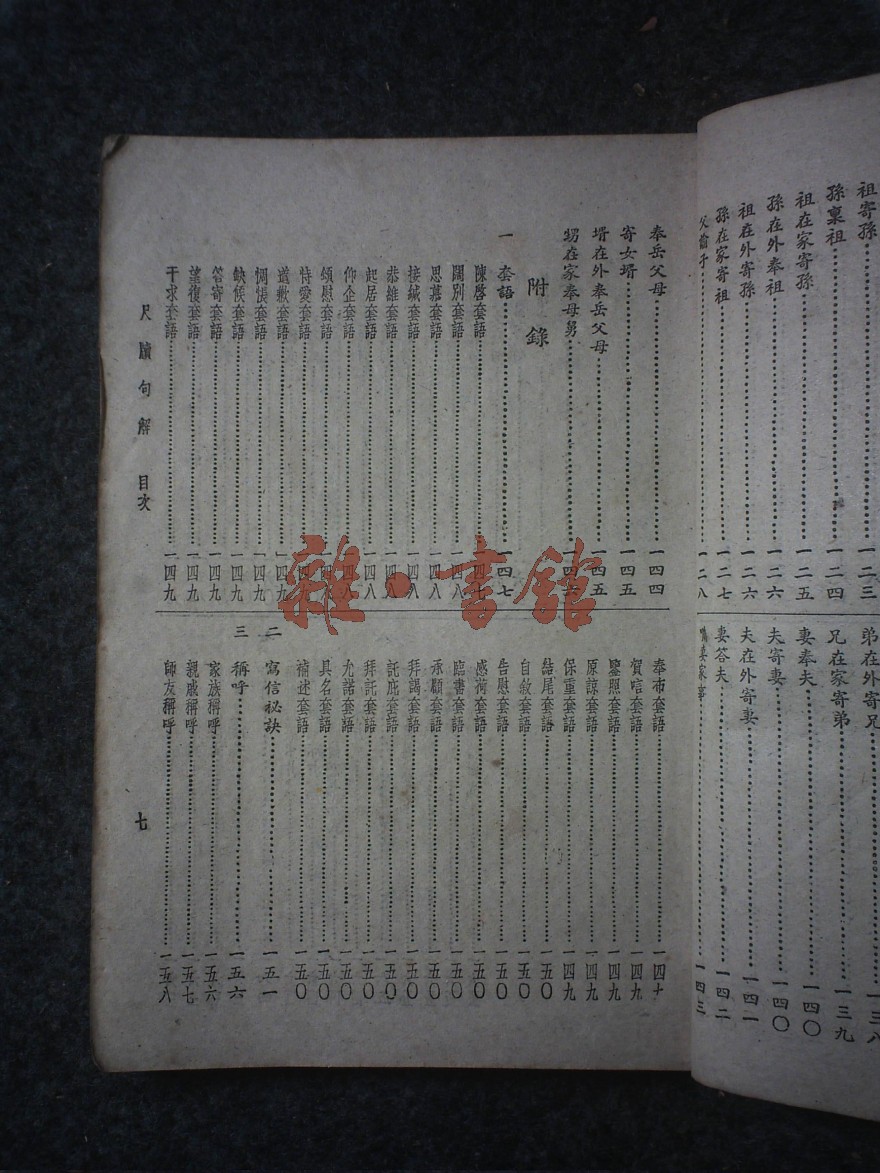 祖寄孫……一二三
孫稟祖……一二四
祖在家寄孫……一二五
孫在外奉祖……一二六
祖在外寄孫……一二六
孫在家寄祖……一二七
一二八
弟在外寄兄……一三八
兄在家寄弟……一三九
妻奉夫……一四〇
夫寄妻……一四〇
夫在外寄妻……一四一
妻答夫……一四二
一四三
奉岳父母……一四四
寄女壻……一四五
壻在外奉岳父母……一四五
甥在家奉母舅……一四六
附錄
一 套語……一四七
陳啓套語……一四七
闊別套語……一四八
思慕套語……一四八
接緘套語……一四八
恭維套語……一四八
起居套語……一四八
仰企套語……一四八
頌慰套語……一四八
恃愛套語……一四九
道歉套語……一四九
惆悵套語……一四九
缺候套語……一四九
答寄套語……一四九
望復套語……一四九
干求套語……一四九
奉布套語……一四九
賀唁套語……一四九
鑒照套語……一四九
原諒套語……一四九
保重套語……一四九
結尾套語……一五〇
自敘套語……一五〇
告慰套語……一五〇
感荷套語……一五〇
臨書套語……一五〇
承顧套語……一五〇
拜謁套語……一五〇
託庇套語……一五〇
拜託套語……一五〇
允諾套語……一五〇
具名套語……一五〇
補述套語……一五〇
二 寫信祕訣……一五一
三 稱呼……一五六
家族稱呼……一五六
親戚稱呼……一五七
師友稱呼……一五八
尺牘句解 目次
七
雜·書館